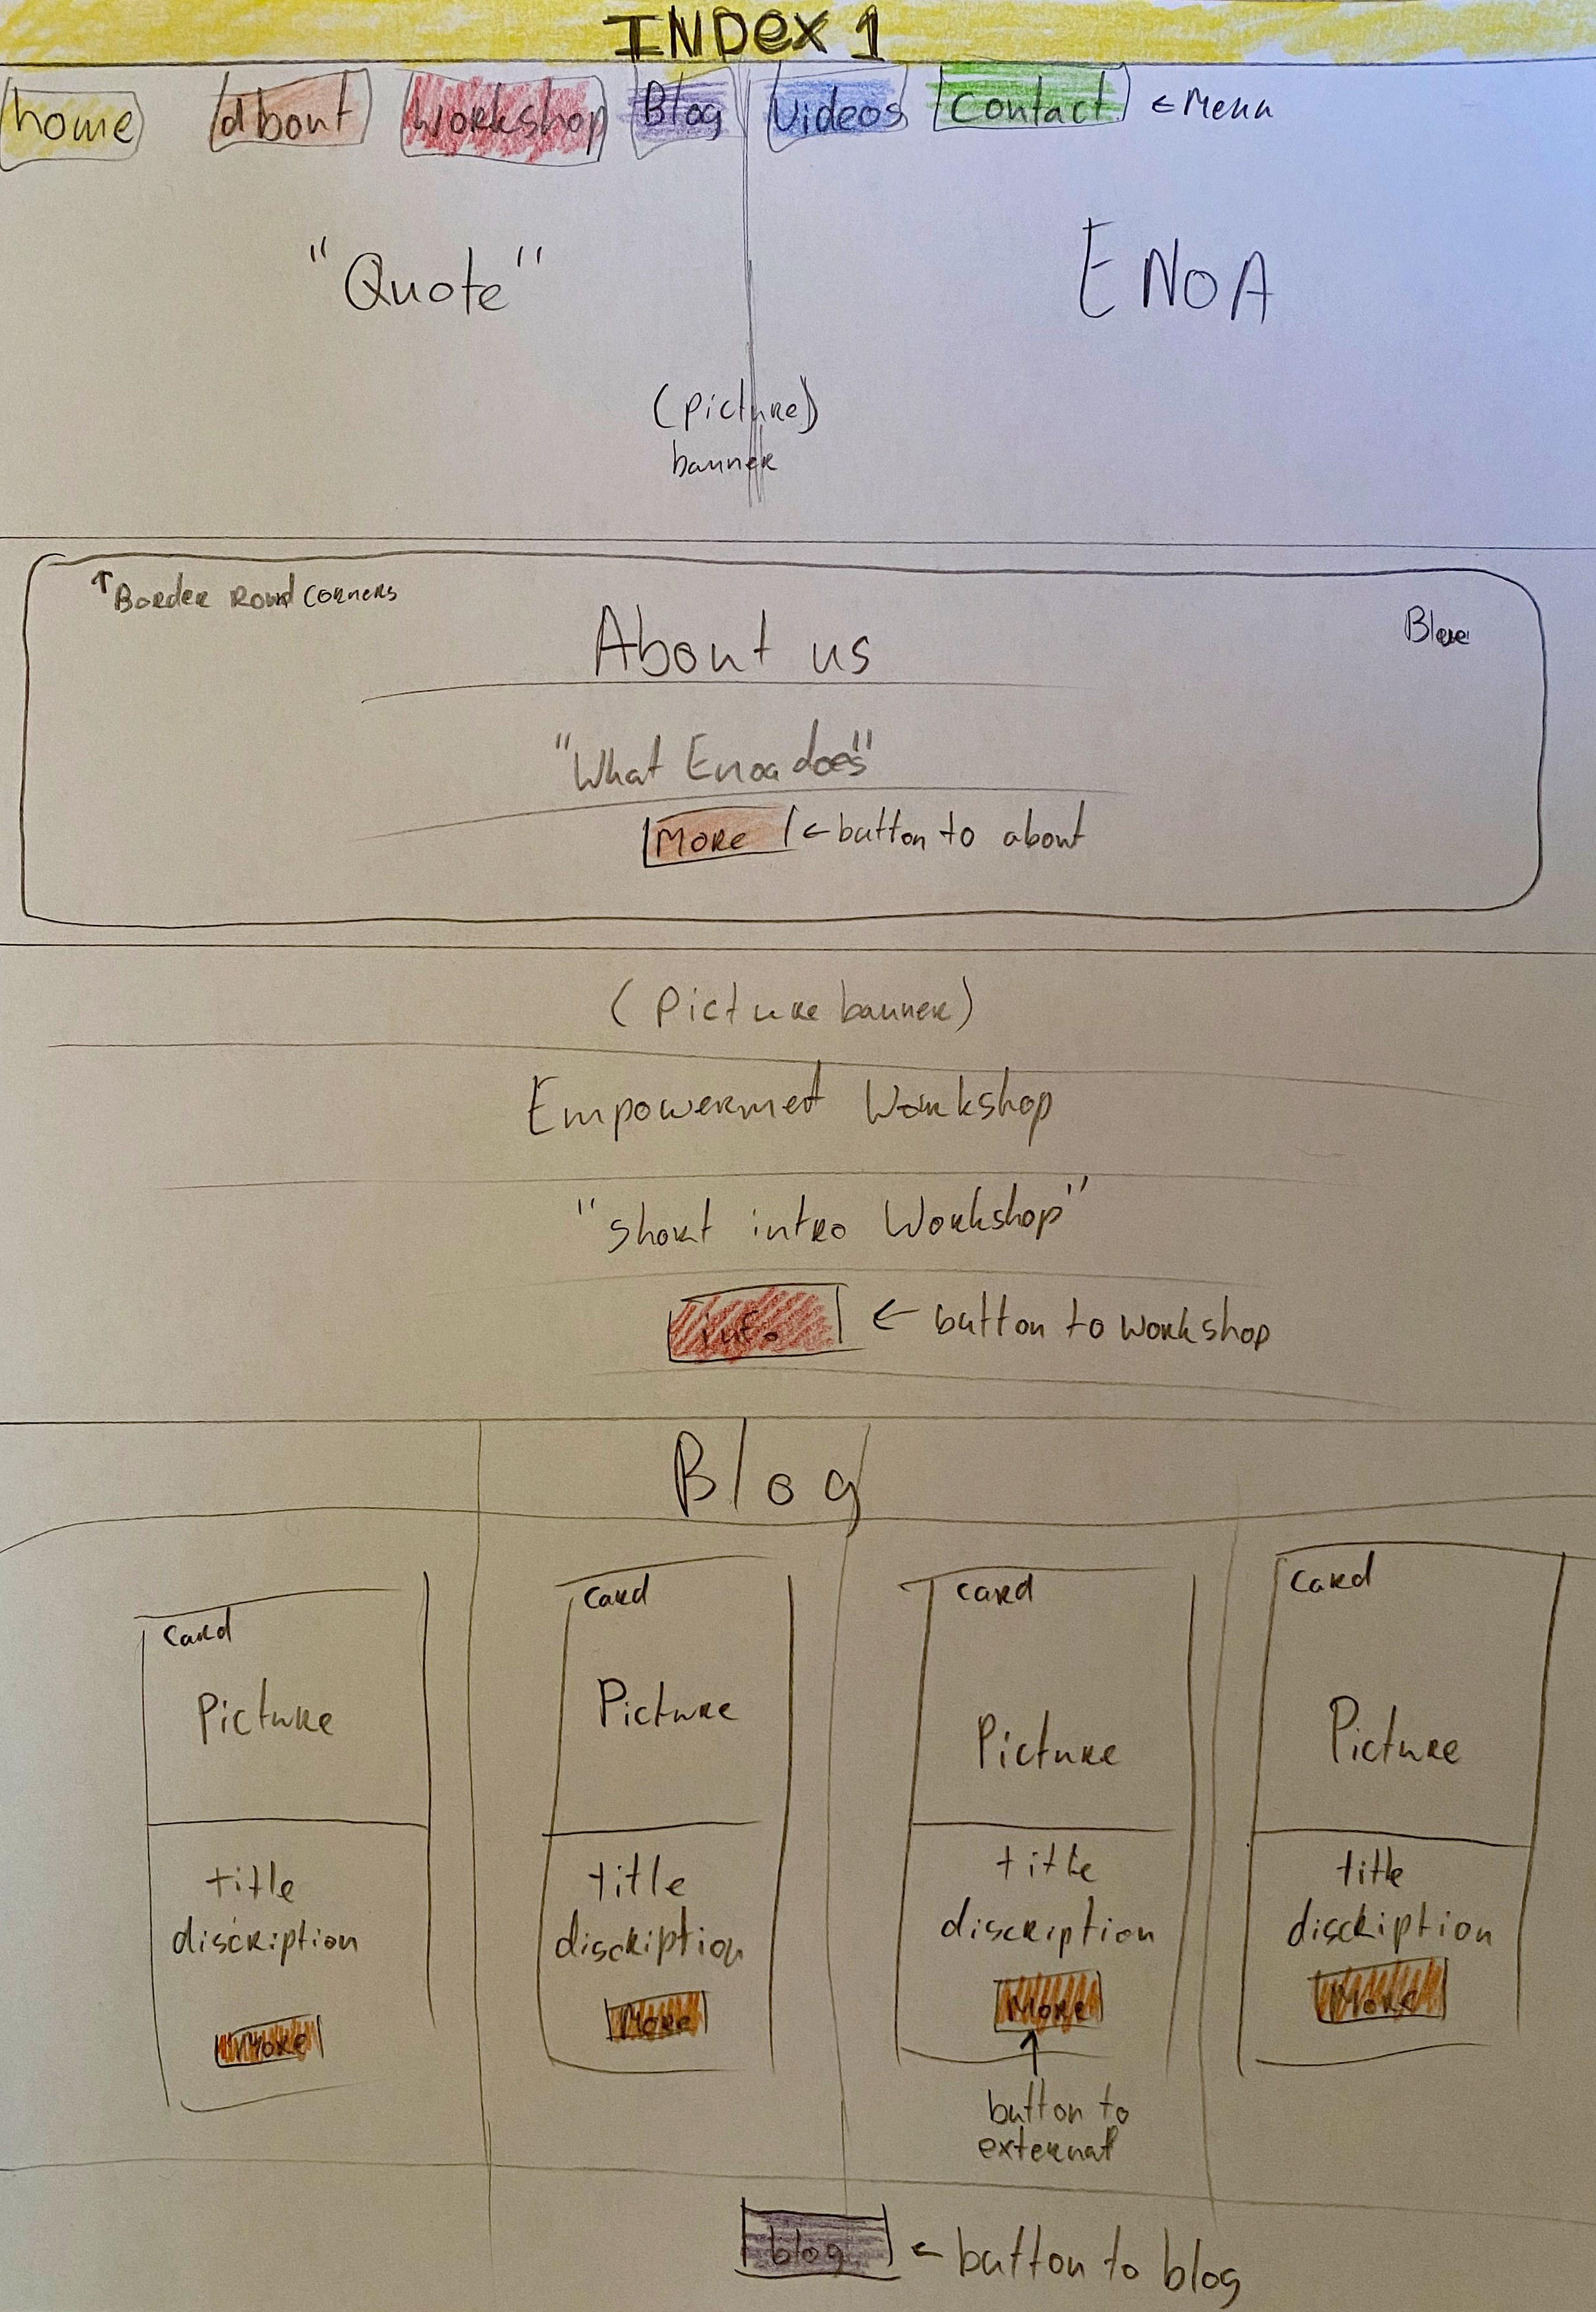 INDex 1
home about Workshop Blog Videos Contact ← Menu
"Quote" ENOA
(picture)
banner
↑ Border Round corners
Blue
About us
"What Enoa does"
More ← button to about
(Picture banner)
Empowermet Workshop
"short intro Workshop"
info ← button to workshop
Blog
Card
Picture
title
discription
More
Card
Picture
title
discription
More
Card
Picture
title
discription
More
↑
button to
external
Card
Picture
title
discription
More
blog ← button to blog